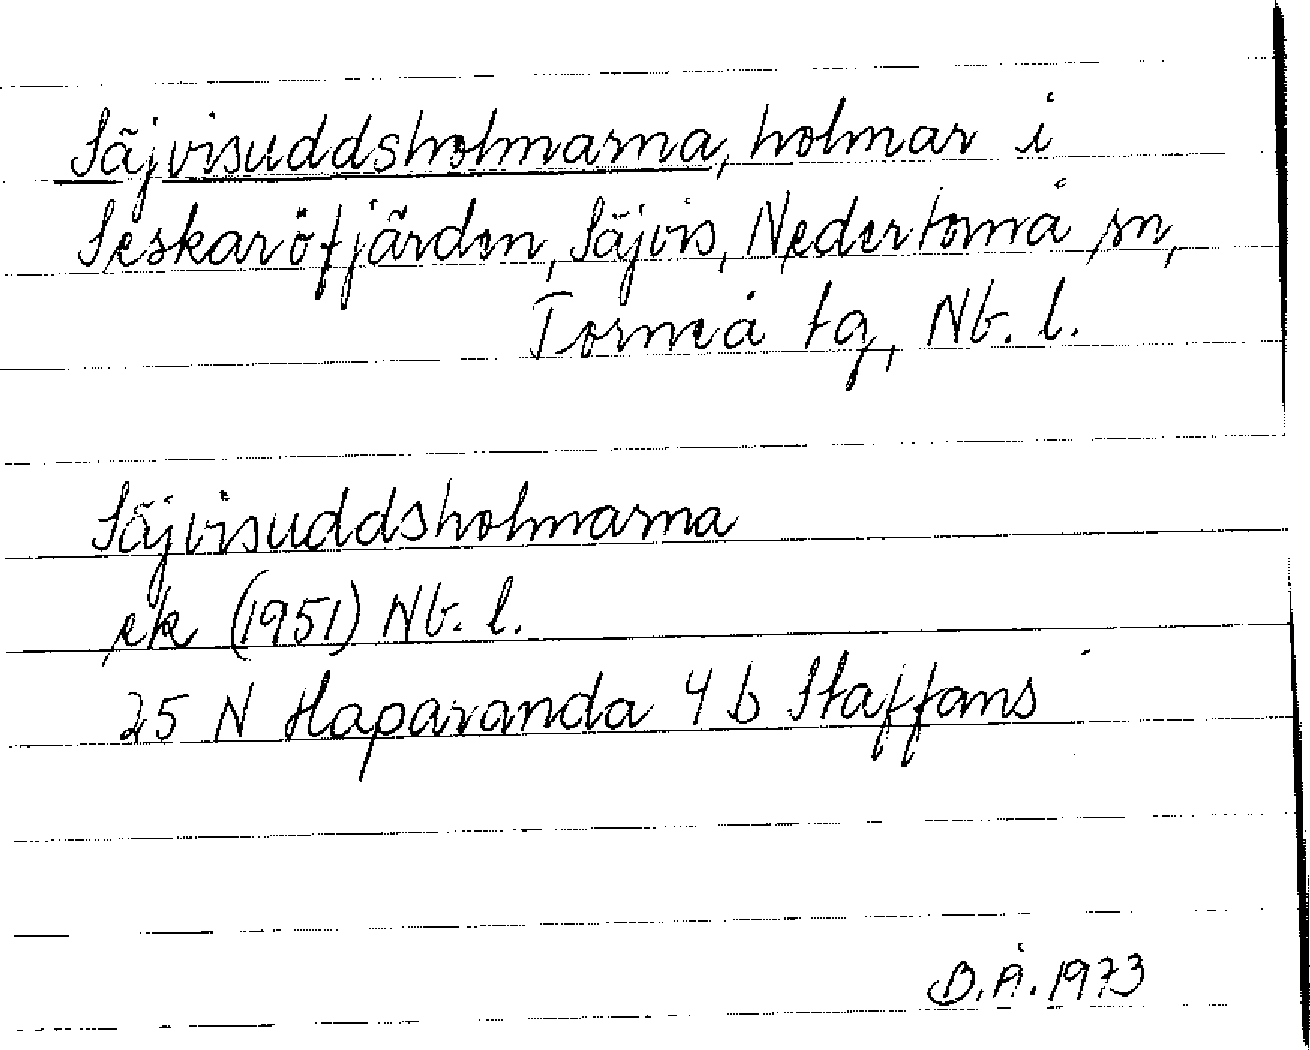 Säjvisuddsholmarna, holmar i
Seskaröfjärden, Säjvis, Nedertorneå sn,
Torneå tg, Nb. l.
Säjvisuddsholmarna
ek (1951) Nb. l.
25 N Haparanda 4 b Staffans
B.Å. 1973